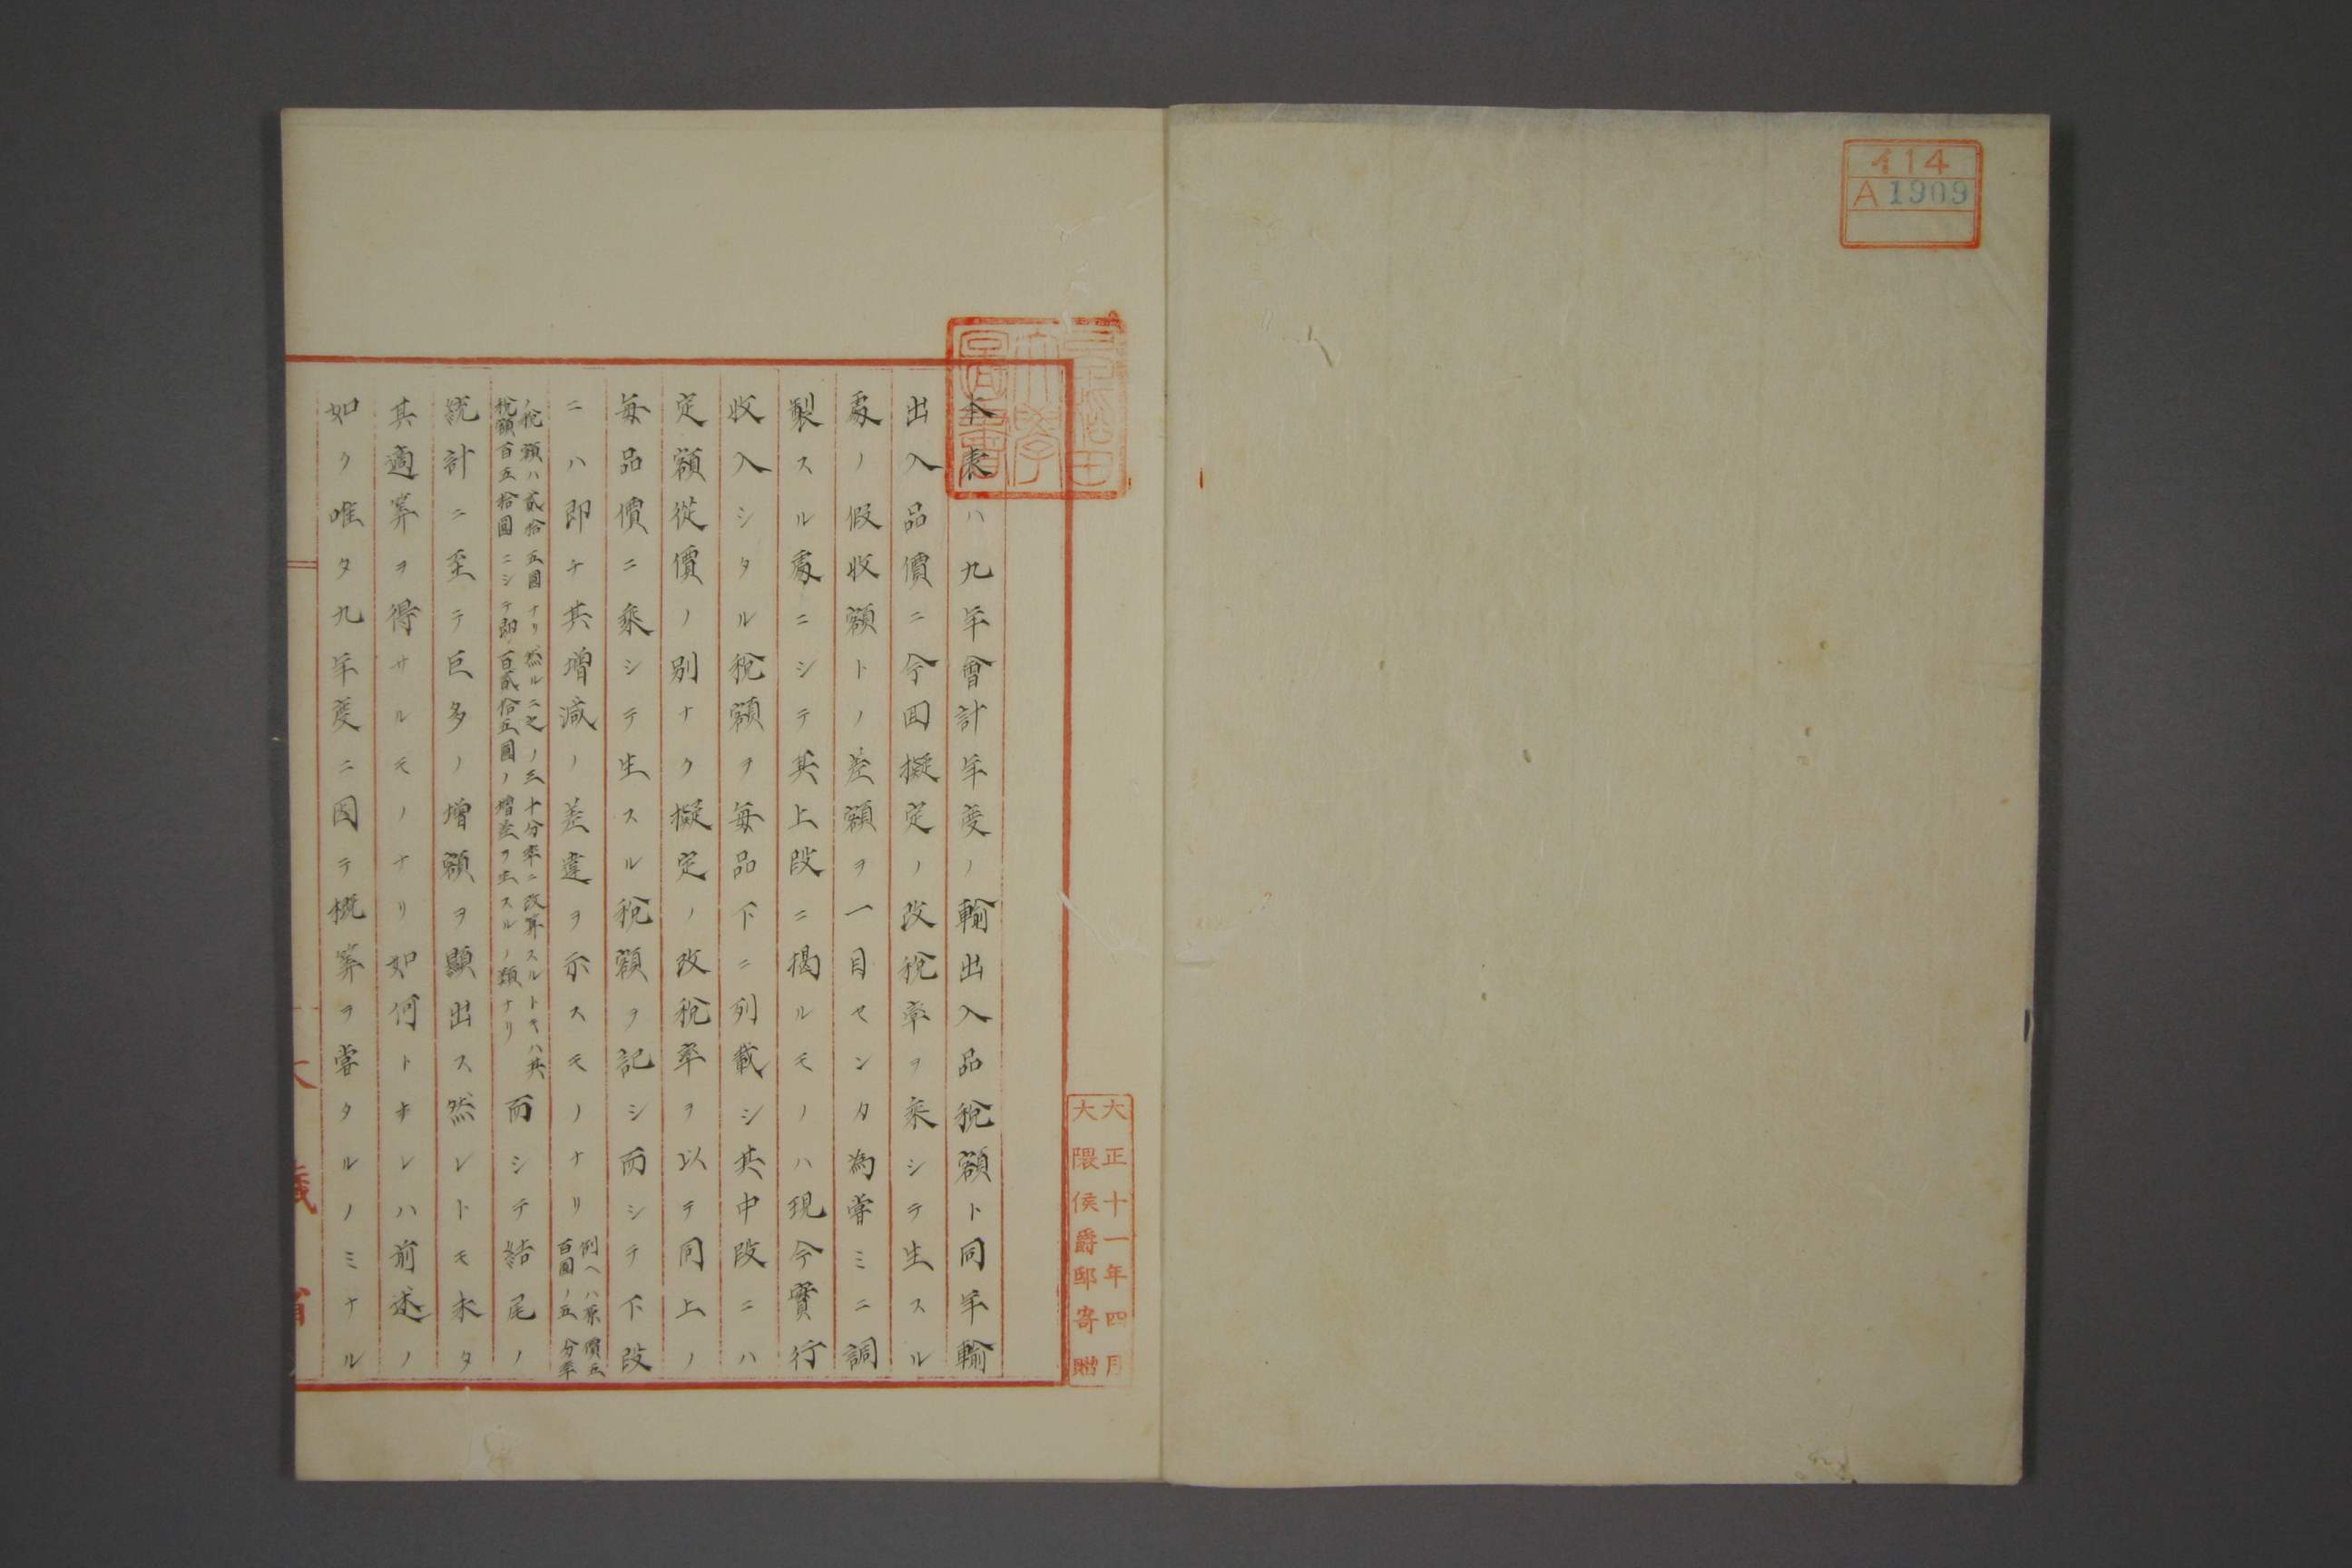 イ14
A1909
早稲田
大學
圖書
大正十一年四月
大隈侯爵邸寄贈
本表ハ九年會計年度ノ輸出入品税額ト同年輸
出入品價ニ今回擬定ノ改税率ヲ乘シテ生スル
處ノ假收額トノ差額ヲ一目センカ為嘗ミニ調
製スル處ニシテ其上段ニ揭ルモノハ現今實行
收入シタル税額ヲ毎品下ニ列載シ其中段ニハ
定額從價ノ別ナク擬定ノ改税率ヲ以テ同上ノ
毎品價ニ乘シテ生スル税額ヲ記シ而シテ下段
ニハ即チ其增減ノ差違ヲ示スモノナリ
例ヘハ原價五
百圓ノ五分率
ノ税額ハ貳拾五圓ナリ然ルニ之ノ三十分率ニ改算スルトキハ其
税額百五拾圓ニシテ即百貳拾五圓ノ增差ヲ生スルノ類ナリ
而シテ結尾ノ
統計ニ至テ巨多ノ增額ヲ顯出ス然レトモ未タ
其適筭ヲ得サルモノナリ如何トナレハ前述ノ
如ク唯タ九年度ニ因テ概筭ヲ嘗タルノミナル
大藏省